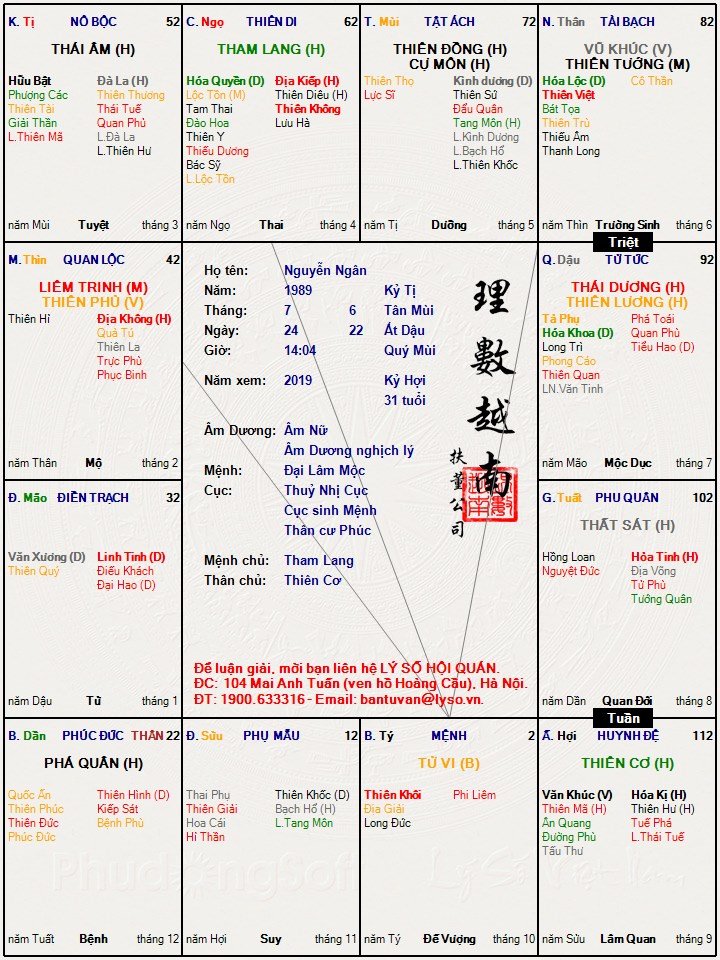 K. Tị NÔ BỘC 52
THÁI ÂM (H)
Hữu Bật
Phượng Các
Thiên Tài
Giải Thần
L.Thiên Mã
Đà La (H)
Thiên Thương
Thái Tuế
Quan Phủ
L.Đà La
L.Thiên Hư
năm Mùi Tuyệt tháng 3
C. Ngọ THIÊN DI 62
THAM LANG (H)
Hóa Quyền (D)
Lộc Tồn (M)
Tam Thai
Đào Hoa
Thiên Y
Thiếu Dương
Bác Sỹ
L.Lộc Tồn
Địa Kiếp (H)
Thiên Diêu (H)
Thiên Không
Lưu Hà
năm Ngọ Thai tháng 4
T. Mùi TẬT ÁCH 72
THIÊN ĐỒNG (H)
CỰ MÔN (H)
Thiên Thọ
Lực Sĩ
Kình dương (D)
Thiên Sứ
Đẩu Quân
Tang Môn (H)
L.Kình Dương
L.Bạch Hổ
L.Thiên Khốc
năm Tị Dưỡng tháng 5
N. Thân TÀI BẠCH 82
VŨ KHÚC (V)
THIÊN TƯỚNG (M)
Hóa Lộc (D)
Thiên Việt
Bát Tọa
Thiên Trù
Thiếu Âm
Thanh Long
Cô Thần
năm Thìn Trường Sinh tháng 6
Triệt
M. Thìn QUAN LỘC 42
LIÊM TRINH (M)
THIÊN PHỦ (V)
Thiên Hỉ
Địa Không (H)
Quả Tú
Thiên La
Trực Phù
Phục Binh
năm Thân Mộ tháng 2
Họ tên: Nguyễn Ngân
Năm: 1989 Kỷ Tị
Tháng: 7 6 Tân Mùi
Ngày: 24 22 Ất Dậu
Giờ: 14:04 Quý Mùi
Năm xem: 2019 Kỷ Hợi
31 tuổi
Âm Dương: Âm Nữ
Âm Dương nghịch lý
Mệnh: Đại Lâm Mộc
Cục: Thuỷ Nhị Cục
Cục sinh Mệnh
Thân cư Phúc
Mệnh chủ: Tham Lang
Thân chủ: Thiên Cơ
理數越南
扶董公司
Để luận giải, mời bạn liên hệ LÝ SỐ HỘI QUÁN.
ĐC: 104 Mai Anh Tuấn (ven hồ Hoàng Cầu), Hà Nội.
ĐT: 1900.633316 - Email: bantuvan@lyso.vn.
Q. Dậu TỬ TỨC 92
THÁI DƯƠNG (H)
THIÊN LƯƠNG (H)
Tả Phụ
Hóa Khoa (D)
Long Trì
Phong Cáo
Thiên Quan
LN.Văn Tinh
Phá Toái
Quan Phù
Tiểu Hao (D)
năm Mão Mộc Dục tháng 7
Đ. Mão ĐIỀN TRẠCH 32
Văn Xương (D)
Thiên Quý
Linh Tinh (D)
Điếu Khách
Đại Hao (D)
năm Dậu Tử tháng 1
G. Tuất PHU QUÂN 102
THẤT SÁT (H)
Hồng Loan
Nguyệt Đức
Hỏa Tinh (H)
Địa Võng
Tử Phù
Tướng Quân
năm Dần Quan Đới tháng 8
Tuần
B. Dần PHÚC ĐỨC THÂN 22
PHÁ QUÂN (H)
Quốc Ấn
Thiên Phúc
Thiên Đức
Phúc Đức
Thiên Hình (D)
Kiếp Sát
Bệnh Phù
năm Tuất Bệnh tháng 12
Đ. Sửu PHỤ MẪU 12
Thai Phụ
Thiên Giải
Hoa Cái
Hỉ Thần
Thiên Khốc (D)
Bạch Hổ (H)
L.Tang Môn
năm Hợi Suy tháng 11
B. Tý MỆNH 2
TỬ VI (B)
Thiên Khôi
Địa Giải
Long Đức
Phi Liêm
năm Tý Đế Vượng tháng 10
Ấ. Hợi HUYNH ĐỆ 112
THIÊN CƠ (H)
Văn Khúc (V)
Thiên Mã (H)
Ân Quang
Đường Phù
Tấu Thư
Hóa Kị (H)
Thiên Hư (H)
Tuế Phá
L.Thái Tuế
năm Sửu Lâm Quan tháng 9